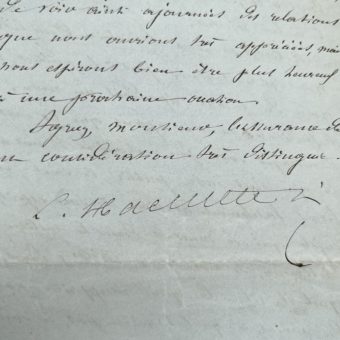 de voir ainsi ajournées des relations
que nous aurions très appréciées, mais
nous espérons bien être plus heureux
à une prochaine occasion
Agréez, monsieur, l'assurance de
ma considération très distinguée
L. Hachette